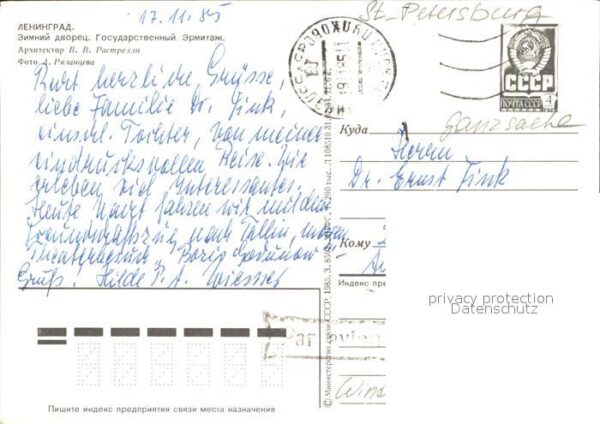 17.11.85
St. Petersburg
ЛЕНИНГРАД.
Зимний дворец. Государственный Эрмитаж.
Архитектор В. В. Растрелли
Фото А. Рязанцева
СССР
ПОЧТА СССР
Ganzsache
Recht herzliche Grüsse
liebe Familie Dr. Fink,
einschl. Tochter, von meiner
eindrucksvollen Reise. Wir
erleben viel Interessantes.
Heute Nacht fahren wir mit dem
nach Tallin,
"Boris Godunow"
Gruß! Hilde
Куда
Herrn
Dr. Ernst Fink
Кому
Индекс пре
privacy protection
Datenschutz
Par avion
© Министерство связи СССР, 1985.
Пишите индекс предприятия связи места назначения